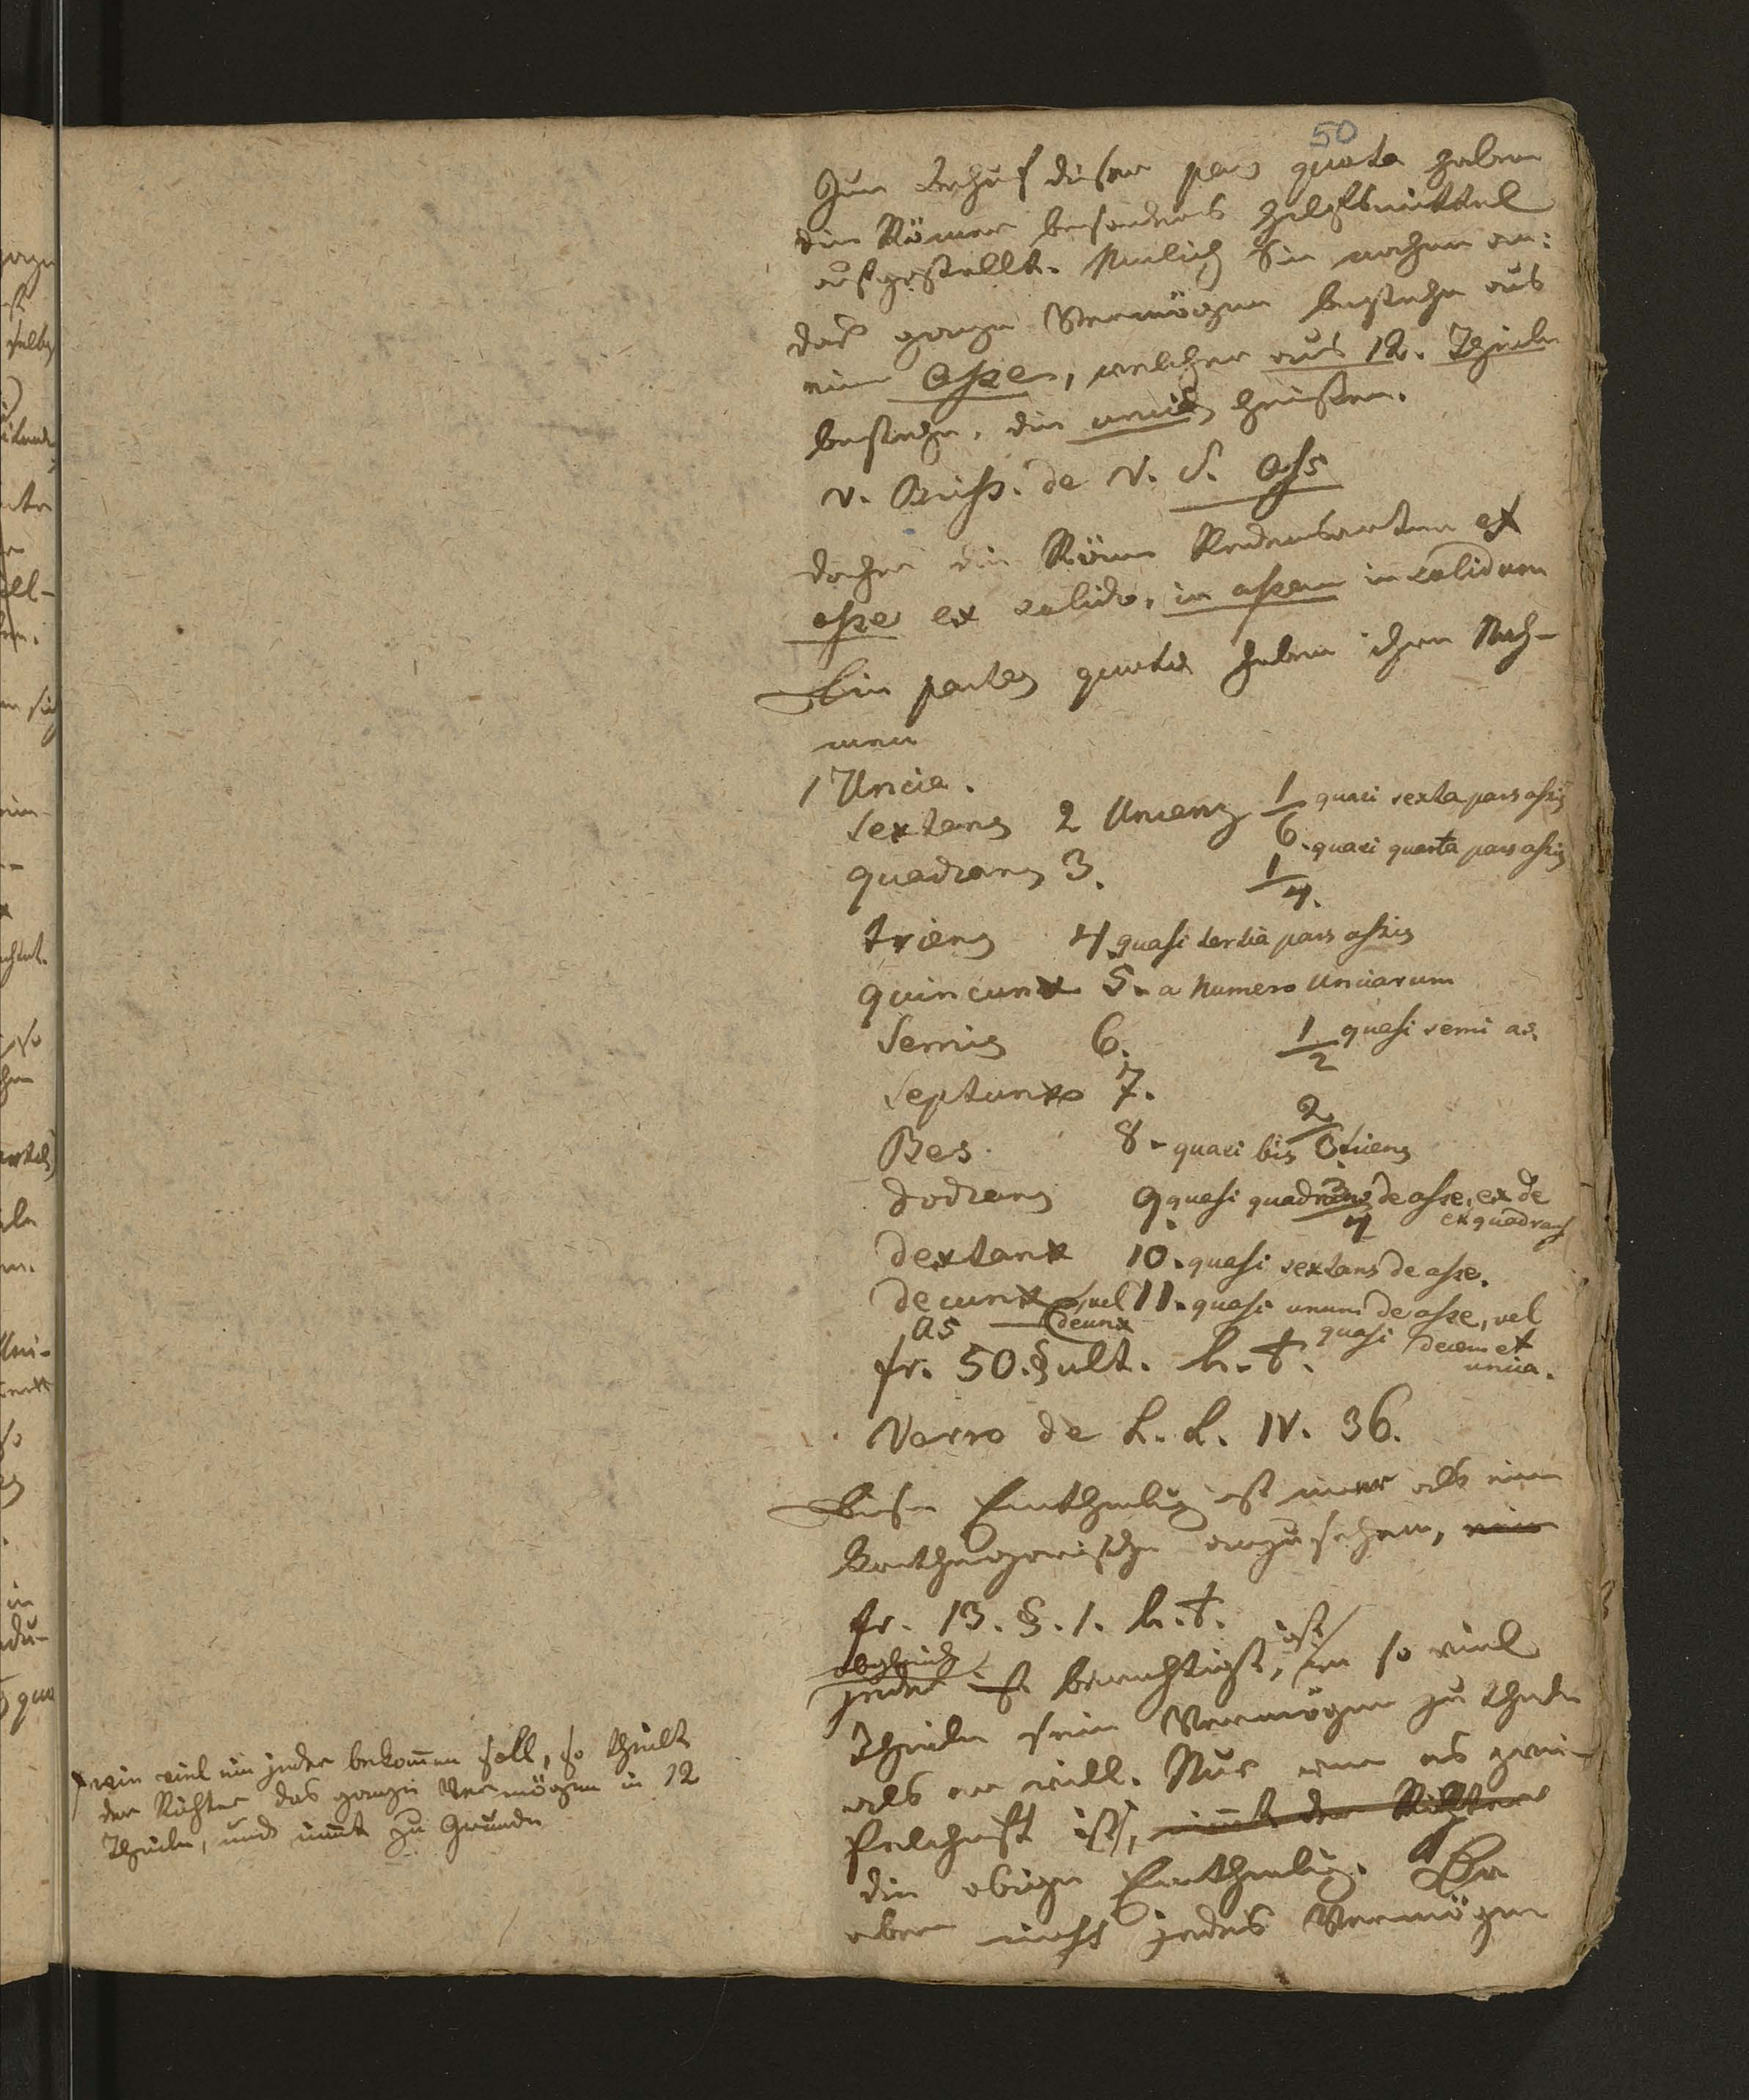 50
Zum Behuf dieser pars quota haben
die Römer besonders Hilfsmittel
aufgestellt. Nemlich Sie nahmen an:
das ganze Vermögen bestehe aus
eim Asse, welcher aus 12. Theilen
bestehe, die unciæ heissen.
v. Briss. de V. S. Ass
daher die Röm Redensarten ex
asse ex solido, in assem in solidum
Die partes quotæ haben ihren Nah-
men
1 Uncia.
Sextans 2 Uncenz 1/6. quasi sexta pars assis
quadrans 3. 1/4. quasi quarta pars assis
triens 4. quasi tertia pars assis
quincunx 5. a numero Unciarum
Semis 6. 1/2 quasi semi as.
Septunx 7.
Bes. 8. quasi bis triens 2/3
dodrans 9. quasi quadrans de asse, ex de 3/4
ex quadrans
dextanx 10. quasi sextans de asse.
decunx, vel 11. quasi unum de asse, vel
deunx quasi decem et
unia.
as —
fr. 50. § ult. h. t.
Varro de L. L. IV. 36.
Diese Eintheilug ist nur als eine
anzusehen, eine
fr. 13. §. 1. h. t.
obgleich
jeder ist berechtigt, ist in so viel
Theile sein Vermögen zu theilen
als er will. Nur wenn es zwei-
felhaft ist, nimt der Richter
die obige Eintheilug. Da
aber nicht jedes Vermögen
wie viel ein jeder bekom̄en soll, so theilt
der Richter das ganze Vermögen in 12
Theile, und nim̄t zu Grunde